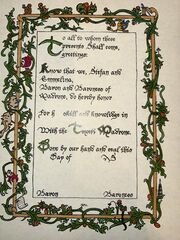 To all to whom these
presents Shall come,
greetings:
Know that we, Stefan and
Emmelina,
Baron and Baroness of
Madrone, do hereby honor
For h skill and knowledge in
With the Madrone.
Done by our hand and seal this
Day of AS
Baron Baroness